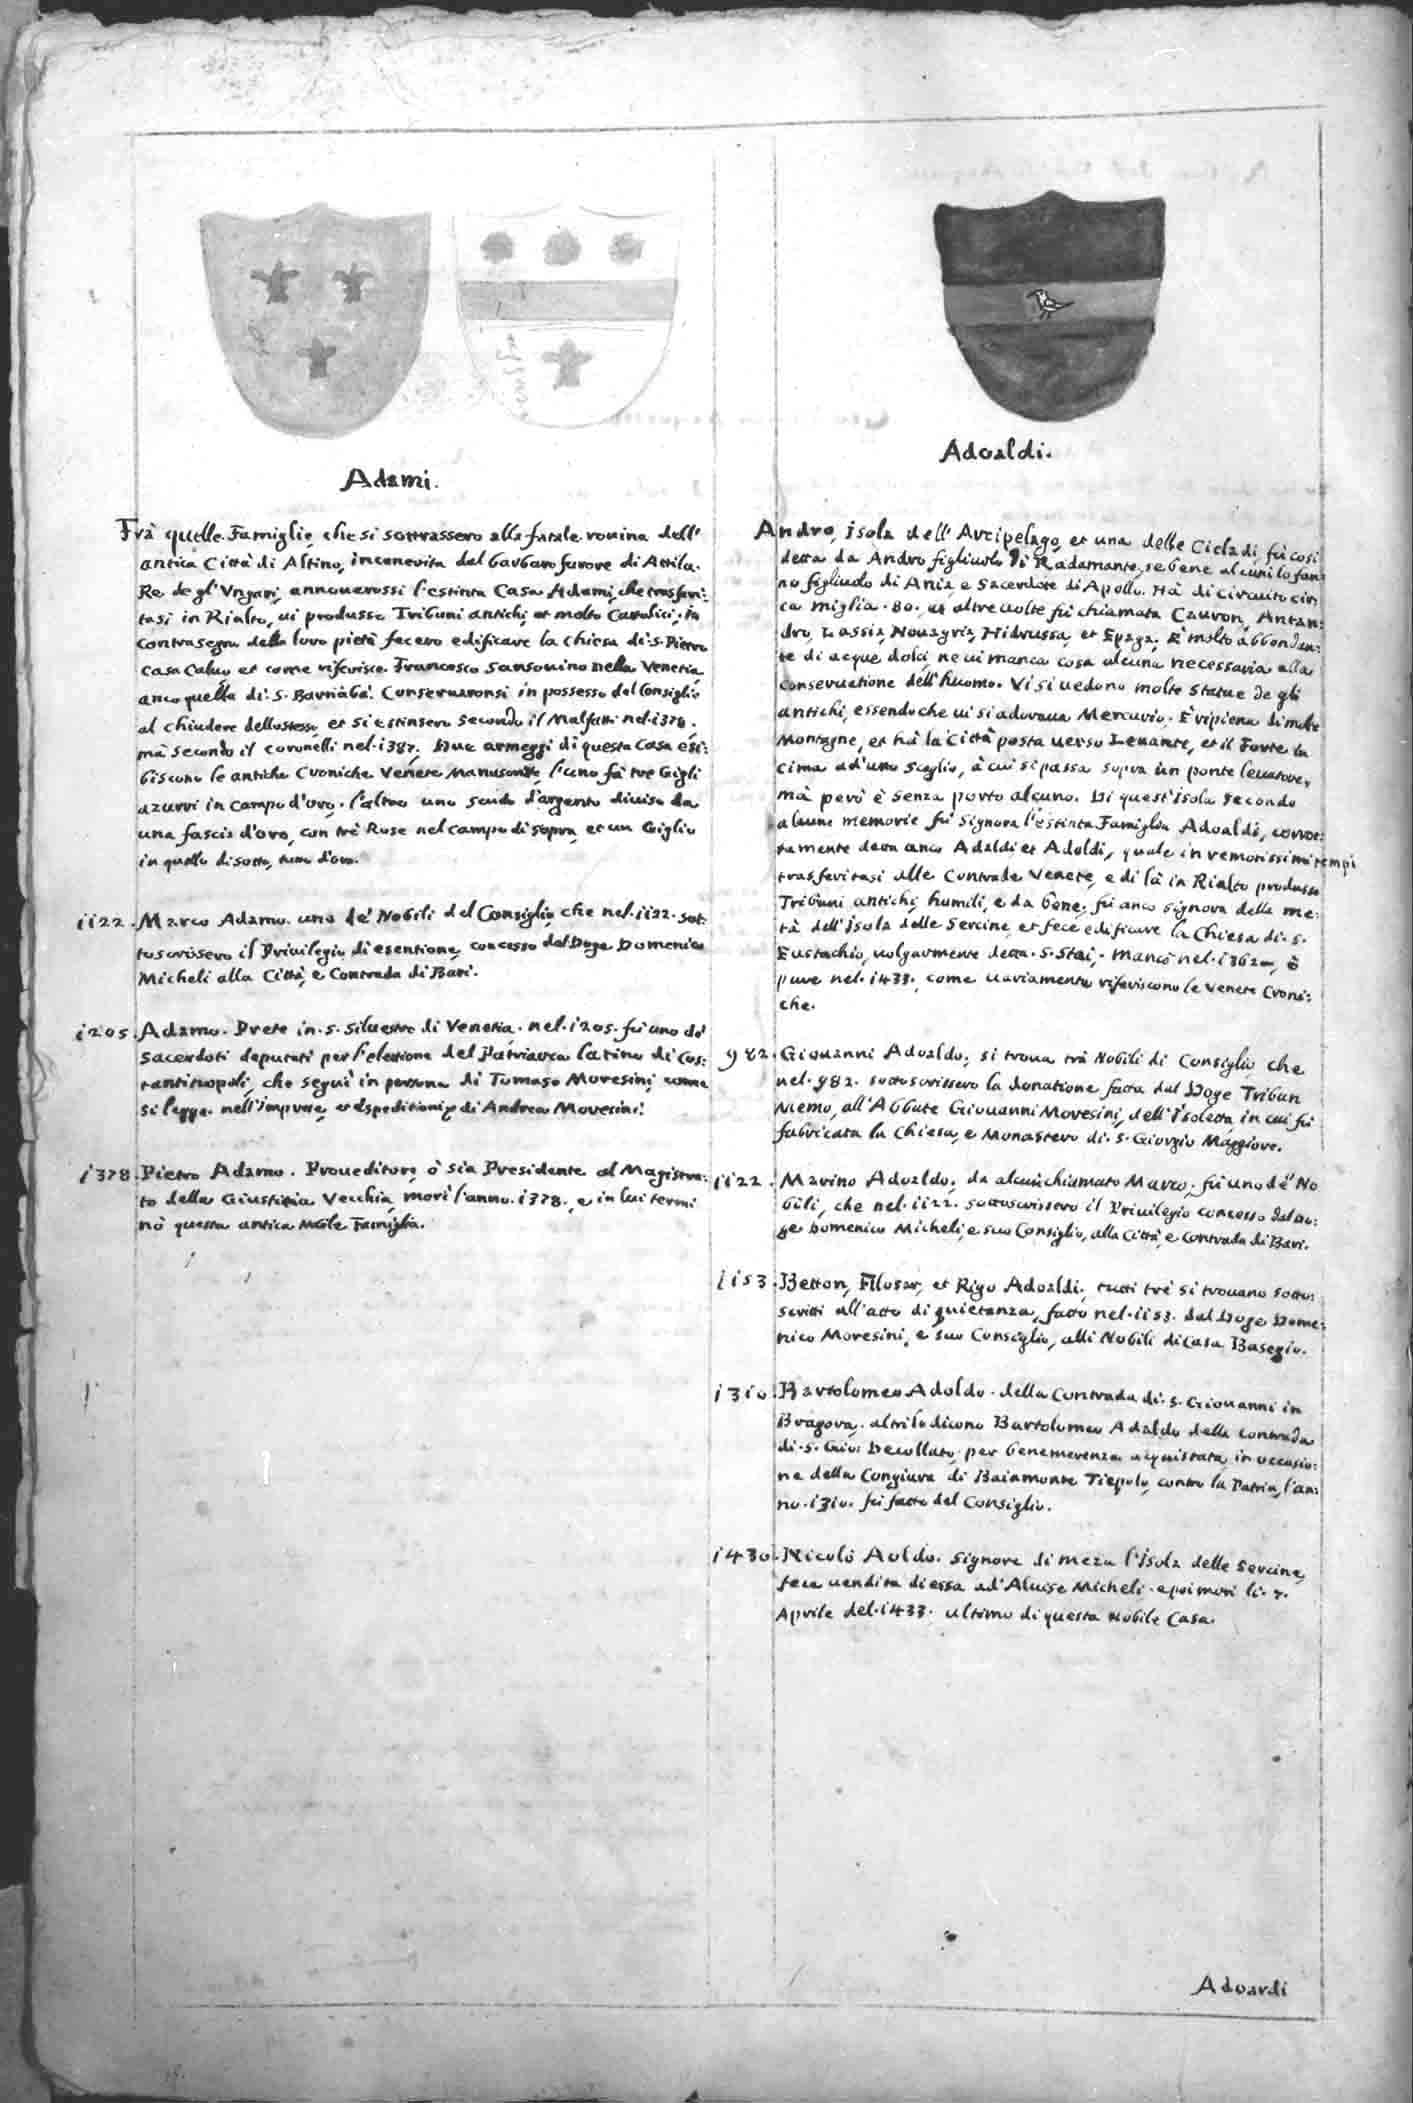 Adami.
Frà quelle Famiglie, che si sottrassero alla fatale rouina dell'
antica Città di Altino, incenerita dal barbaro furore di Attila
Re de gl'Vngari, annouerossi l'estinta Casa Adami, che trasferi:
tasi in Rialto, ui produsse Tribuni antichi, et molto Cattolici; in
contrasegno della loro pietà fecero edificare la Chiesa di S. Pietro
Casa Caluo et come riferisce Francesco Sansouino nella Venetia
anco quella di S. Barnaba. Conseruaronsi in possesso del Consiglio
al chiudere dello stesso, et si estinsero secondo il Malfatti nel 1378,
mà secondo il coronelli nel 1387. Due armeggi di questa Casa esi:
biscono le antiche Croniche Venete Manuscritte, l'uno fà tre Gigli
azurri in campo d'oro, l'altro uno scudo d'argento diuiso da
una fascia d'oro, con trè Rose nel campo di sopra, et un Giglio
in quello di sotto, tutto d'oro.
1122. Marco Adamo. uno de' Nobili del Consiglio, che nel 1122. sot:
toscrisero il Priuilegio di esentione, concesso dal Doge Domenico
Micheli alla Città, e Contrada di Bari.
1205. Adamo. Prete in S. Siluestro di Venetia. nel 1205. fù uno de'
sacerdoti deputati per l'elettione del Patriarca latino di Cos:
tantinopoli, che seguì in persona di Tomaso Moresini, come
si legge nell'Imprese, et Espeditioni di Andrea Moresini.
1378. Pietro Adamo. Proueditore, ò sia Presidente al Magistra:
to della Giustitia Vecchia, morì l'anno 1378. e in lui termi
nò questa antica Nobile Famiglia.
Adoaldi.
Andro, Isola dell'Arcipelago, et una delle Cicladi, fù così
detta da Andro figliuolo di Radamante, se bene alcuni lo fan:
no figliuolo di Ania, e Sacerdote di Apollo. Hà di circuito cir
ca miglia 80. et altre uolte fù chiamata Cauron, Antan:
dro, Lassia, Nouagria, Hidrussa, et Epaga. È molto abbondan:
te di acque dolci, ne ui manca cosa alcuna necessaria alla
conseruatione dell'huomo. Vi si uedono molte statue de gli
antichi, essendo che ui si adoraua Mercurio. È ripiena di molte
Montagne, et hà la Città posta uerso Leuante, et il Forte in
cima ad'uno Scoglio, à cui si passa sopra un ponte leuatore,
mà però è senza porto alcuno. Di quest'Isola secondo
alcune memorie fù Signora l'estinta Famiglia Adoaldi, corrot:
tamente detta anco Adaldi et Adoldi, quale in remotissimi tempi
trasferitasi alle Contrade Venete, e di là in Rialto produsse
Tribuni antichi, humili, e da bene; fù anco Signora della me:
tà dell'Isola delle Sercine, et fece edificare la Chiesa di S.
Eustachio, uolgarmente detta S. Stai. Mancò nel 1362, ò
pure nel 1433. come uariamente riferiscono le Venete Croni:
che.
982. Giouanni Adoaldo, si troua trà Nobili di Consiglio che
nel 982. sottoscrissero la donatione fatta dal Doge Tribun
Memo, all'Abbate Giouanni Moresini, dell'Isoletta, in cui fù
fabricata la Chiesa, e Monastero di S. Giorgio Maggiore.
1122. Marino Adoaldo, da alcuni chiamato Marco, fù uno de' No
bili, che nel 1122. sottoscrissero il Priuilegio concesso dal Do:
ge Domenico Micheli, e suo Consiglio, alla Città, e Contrada di Bari.
1153. Betton, Filosar, et Rigo Adoaldi, tutti trè si trouano sotto:
scritti all'atto di quietanza, fatto nel 1153. dal Doge Dome:
nico Moresini, e suo Consiglio, alli Nobili di Casa Basegio.
1310. Bartolomeo Adoldo della Contrada di S. Giouanni in
Bragora, altri lo dicono Bartolomeo Adaldo della contrada
di S. Gio: Decollato, per benemerenza acquistata, in occasio:
ne della Congiura di Baiamonte Tiepolo, contro la Patria, l'an:
no 1310. fù fatto del Consiglio.
1430. Nicolò Aoldo. Signore di meza l'Isola delle Sercine,
fece uendita di essa ad'Aluise Micheli e poi morì li 7.
Aprile del 1433. ultimo di questa Nobile Casa.
Adoardi